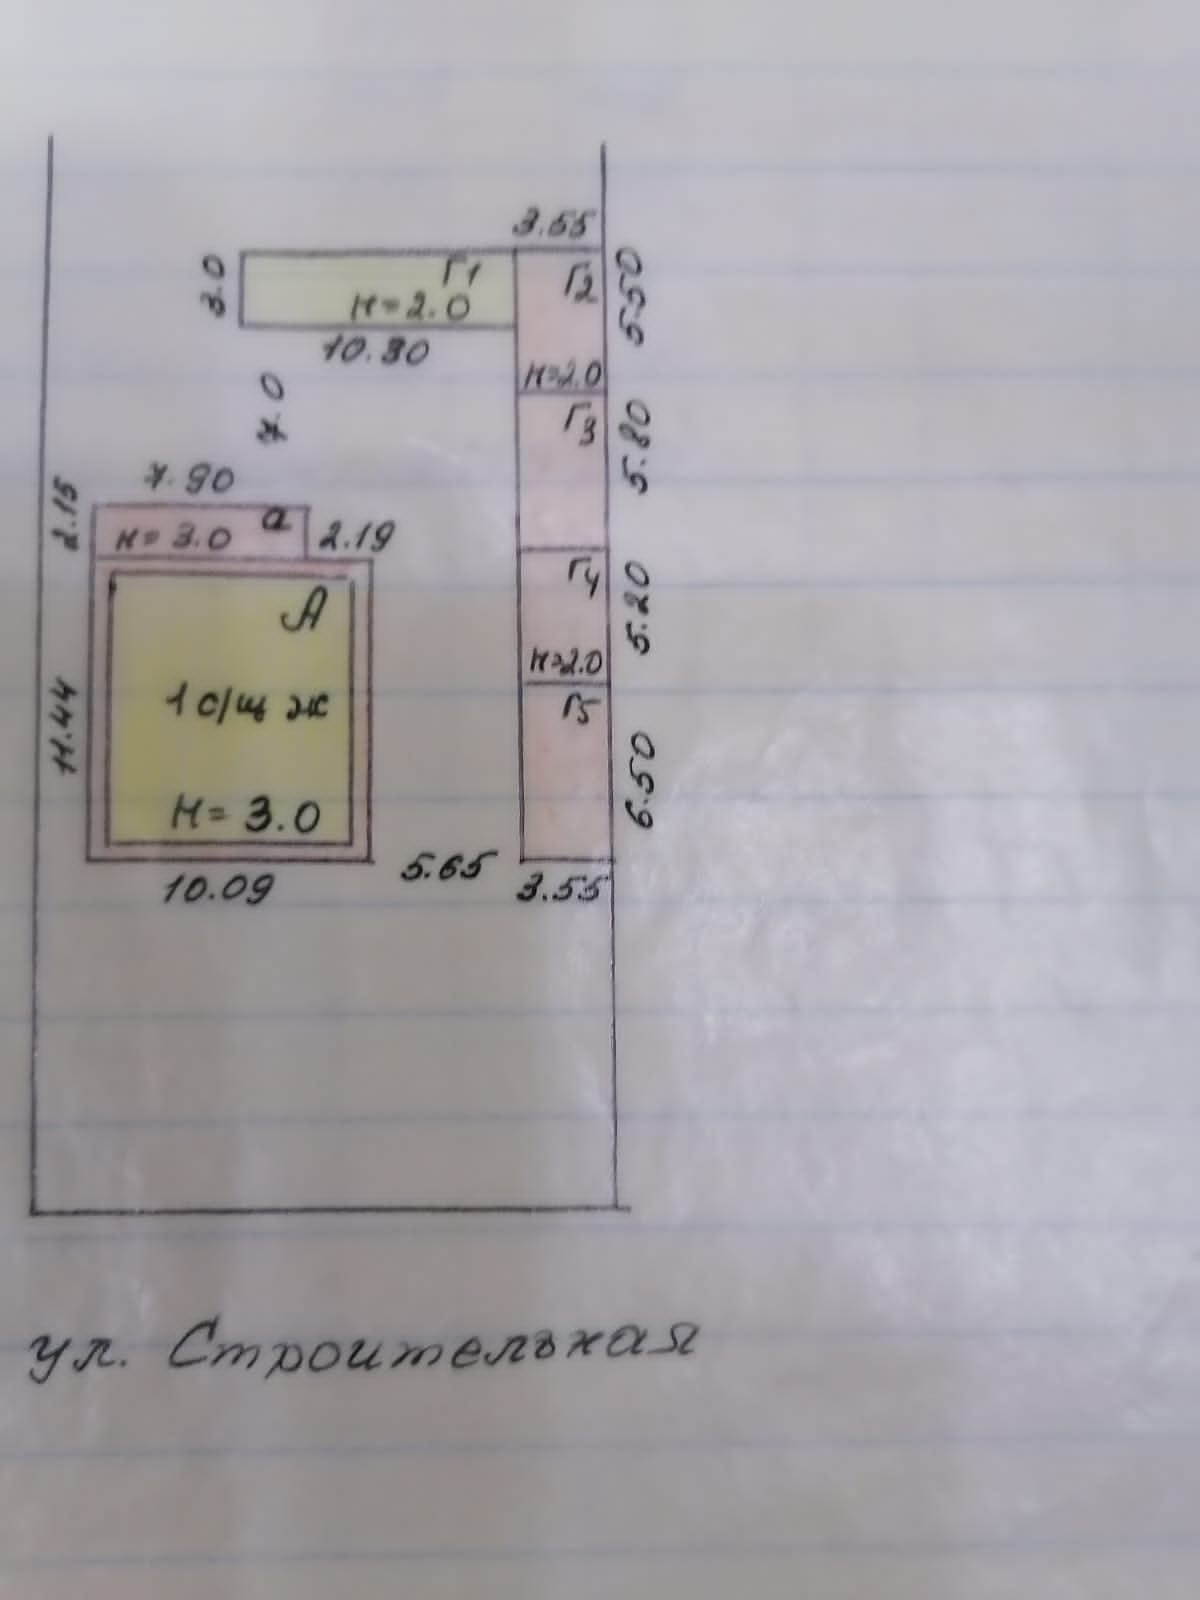 3.55
3.0
Г1
Г2
5.50
н=2.0
10.30
н=2.0
7.0
Г3
5.80
7.90
2.15
а
н= 3.0
2.19
Г4
5.20
А
н=2.0
1 с/щ ж
Г5
11.44
6.50
н= 3.0
5.65
3.55
10.09
ул. Строительная